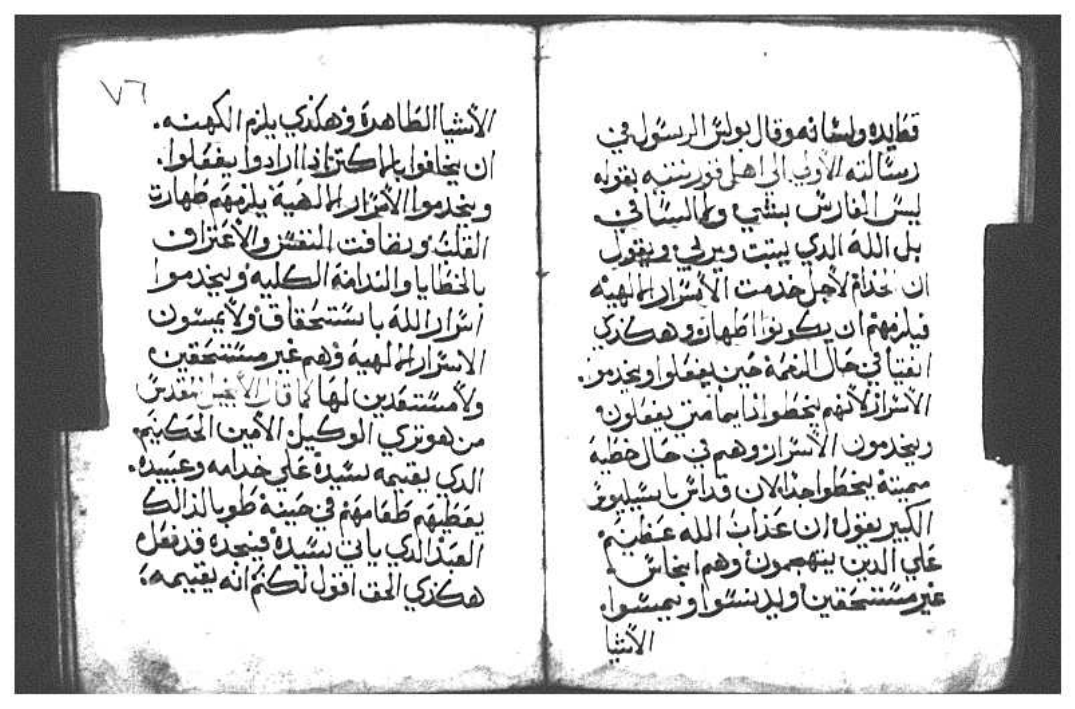 قطايده ولسانه وقال بولس الرسول في
رسالته الاولي الي اهل قورنتيه بقوله
ليس الغارس بشي ولا الساقي
بل الله الدي ينبت ويربي ويقول
ان الخدام لاجل خدمت الاسرار الالهيه
فيلزمهم ان يكونوا اطهار وهكذي
انقيا في حال النعمة حين يفعلوا ويخدموا
الاسرار لانهم يخطوا دايما متي يفعلون
ويخدمون الاسرار وهم في حال خطية
مميتة يخطوا جدا لان قداس باسيليوس
الكبير يقول ان عذاب الله عظيم
علي الدين يتهجمون وهم انجاس
غير مستحقين ويدنسوا ويمسوا
الاشيا
٧٦
الاشيا الطاهرة وهكذي يلزم الكهنه
ان يخافوا بالاكتر اذا ارادوا يفعلوا
ويخدموا الاسرار الالهية يلزمهم طهارت
القلب ونضافت النفس والاعتراف
بالخطايا والندامة الكليه ويخدموا
اسرار الله باستحقاق ولا يمسون
الاسرار الالهية وهم غير مستحقين
ولا مستعدين لها كما قال الانجيل المقدس
من هو تري الوكيل الامين الحكيم
الدي يقيمه سيده علي خدامه وعبيده
يعطيهم طعامهم في حينه طوبا لذالك
العبد الدي ياتي سيده فيجده قد فعل
هكذي الحق اقول لكم انه يقيمه